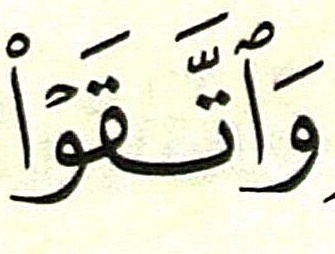 وَٱتَّقَوۡا۟